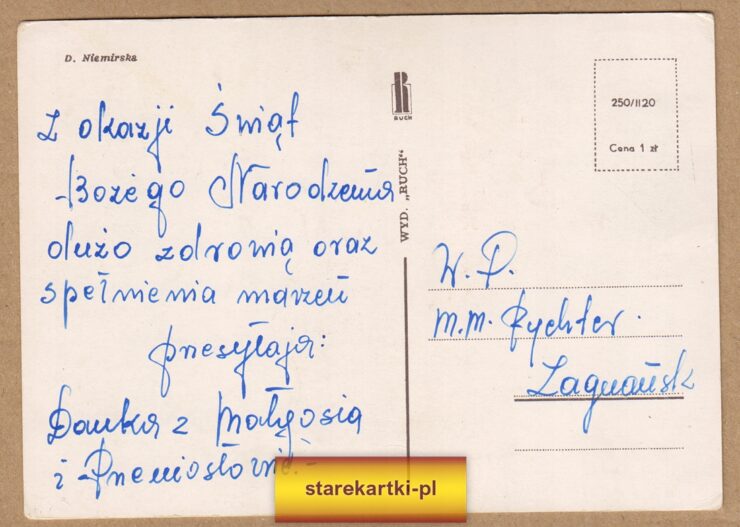 D. Niemirska
Z okazji Świąt
Bożego Narodzenia
dużo zdrowia oraz
spełnienia marzeń
przesyłają:
Danka z Małgosią
i
RUCH
WYD. „RUCH“
250/II20
Cena 1 zł
W. P.
M.M. Rychter.
Zagnańsk
starekartki-pl